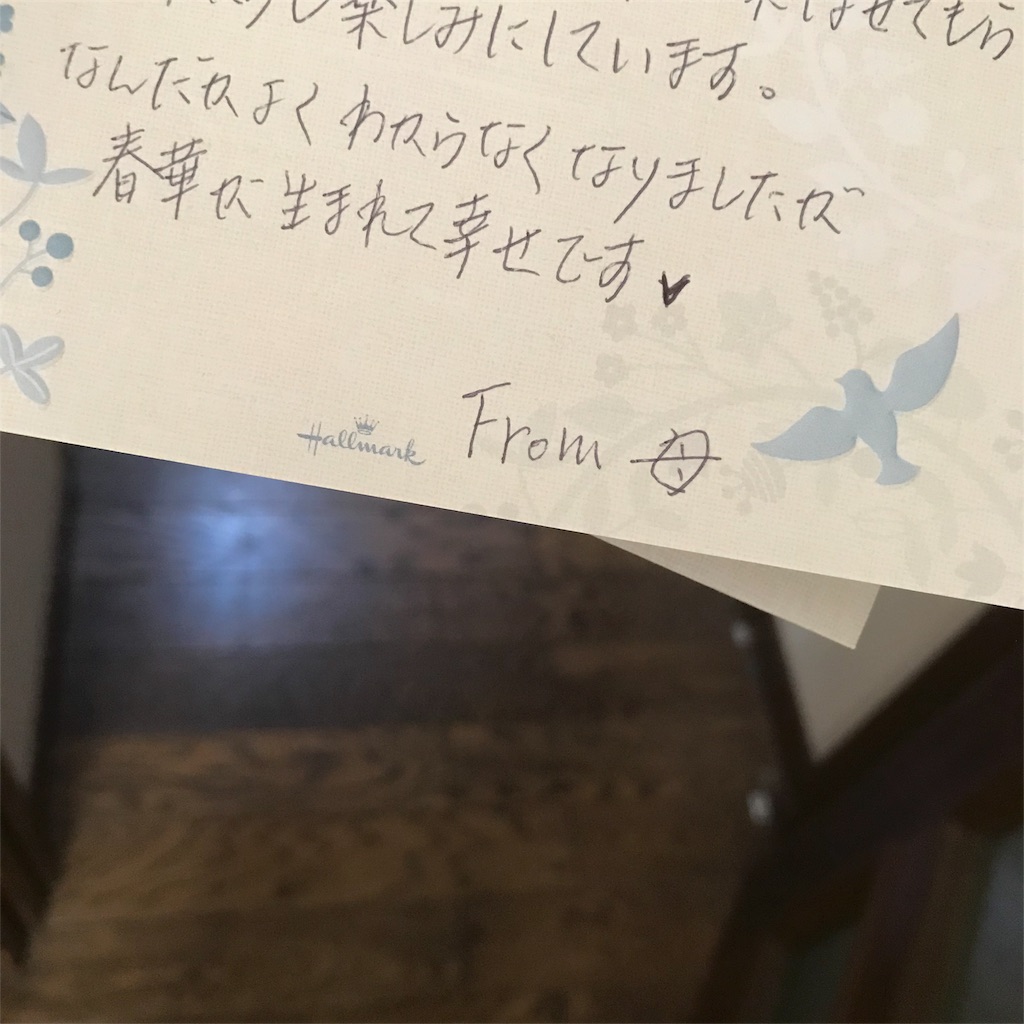 楽しみにしています。
なんだかよくわからなくなりましたが
春華が生まれて幸せです♥
Hallmark
From 母